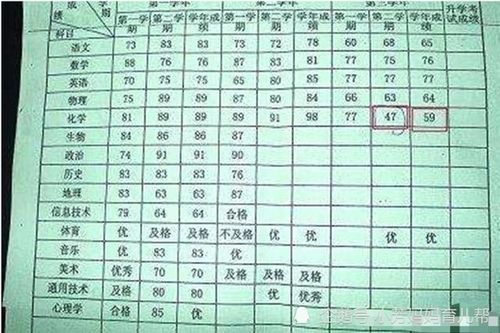 成绩 学期 科目 第一学年 第二学年 第三学年 升学考试成绩
第一学期 第二学期 学年成绩 第一学期 第二学期 学年成绩 第一学期 第二学期 学年成绩
语文 73 83 83 73 72 78 60 68 65
数学 88 76 76 87 83 81 77 75 76
英语 70 75 75 65 80 85 77 77 77
物理 75 89 89 87 80 84 66 63 64
化学 81 89 89 89 91 98 77 47 59
生物 84 86 86 87
政治 74 91 91 90
历史 83 83 83 76
地理 83 63 63 87
信息技术 79 64 64 合格
体育 优 及格 及格 不及格 优 优 优 优
音乐 优 83 83 优
美术 优秀 70 70 及格 及格 及格
通用技术 及格 80 80 80 优秀
心理学 合格 85 优